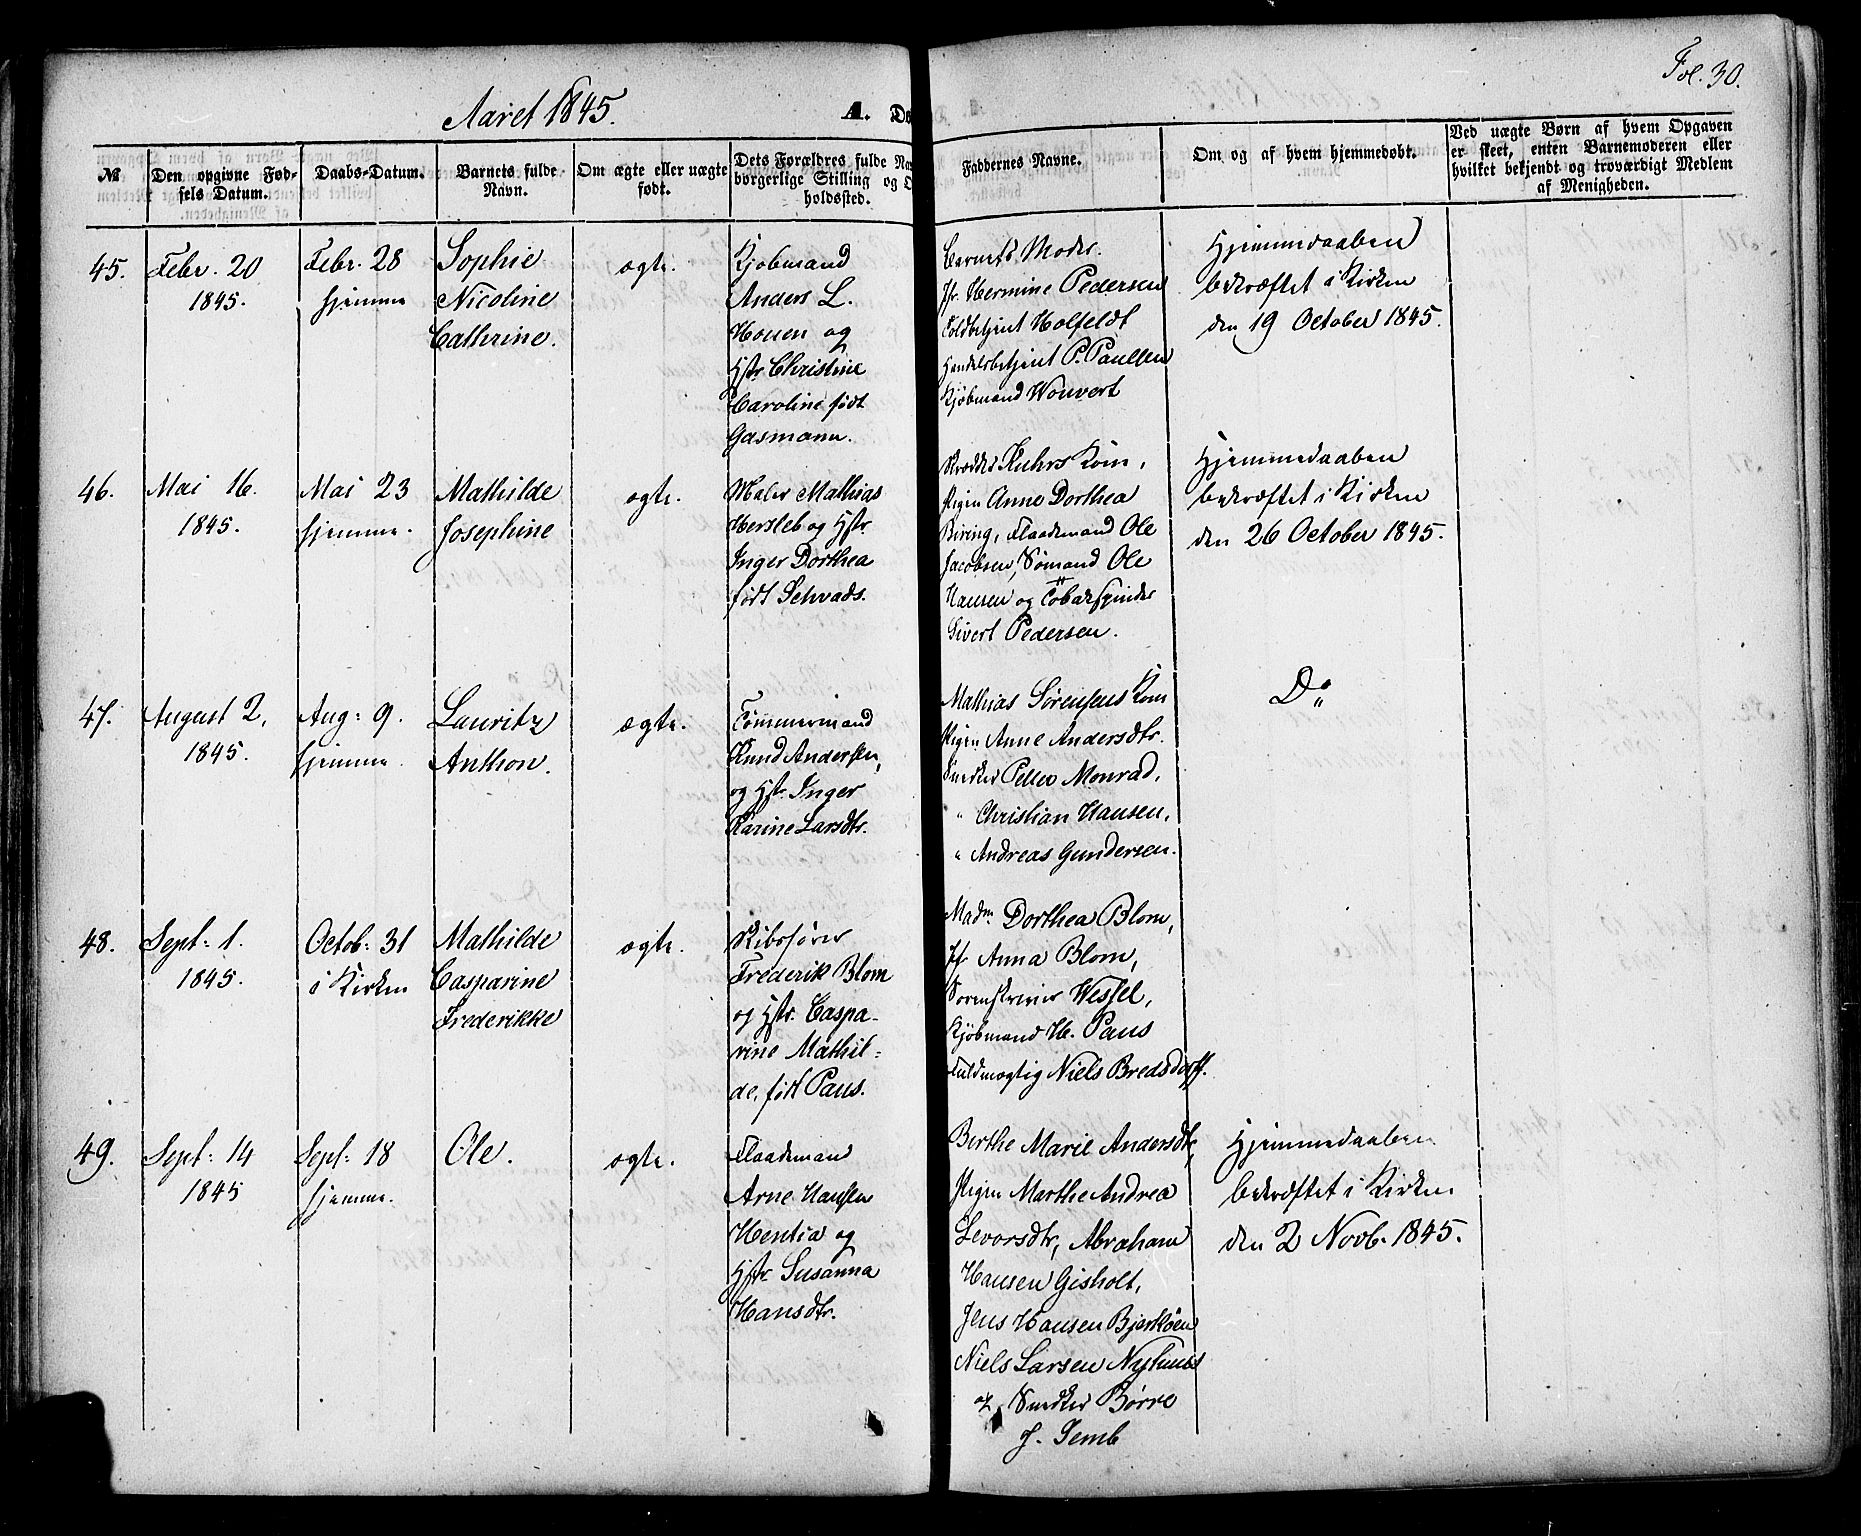 Aaret 1845.
A. Dø
Fol. 30.
№
Den opgivne Fødsels Datum.
Daabs-Datum.
Barnets fulde Navn.
Om ægte eller uægte født.
Dets Forældres fulde Nav
borgerlige Stilling og O
holdssted.
Faddernes Navne.
Om og af hvem hjemmedøbt.
Ved uægte Børn af hvem Opgaven
er skeet, enten Barnemoderen eller
hvilket bekjendt og troværdigt Medlem
af Menigheden.
45.
Febr. 20
1845.
Febr. 28
hjemme
Sophie
Nicoline
Cathrine.
ægte.
Kjøbmand
Anders L.
Houen og
Hstr. Christine
Caroline født
Gasmann.
Barnets Moder.
Jfr. Hermine Pedersen
Toldbetjent Holfeldt
Handelsbetjent P. Paulsen
Kjøbmand Wouvert
Hjemmedaaben
bekræftet i Kirken
den 19 October 1845.
46.
Mai 16.
1845.
Mai 23
hjemme.
Mathilde
Josephine
ægte.
Maler Mathias
Hersleb og Hstr.
Inger Dorthea
født Schvads.
Skrædder Kuhrs Kone,
Pigen Anne Dorthea
Biring, Flaademand Ole
Jacobsen, Sømand Ole
Hansen og Tobakspinder
Sivert Pedersen.
Hjemmedaaben
bekræftet i Kirken
den 26 October 1845.
47.
August 2,
1845.
Aug: 9.
hjemme.
Lauritz
Anthon.
ægte.
Tømmermand
Knud Andersen,
og Hstr. Inger
Karine Larsdtr.
Mathias Sørensens Kone
Pigen Anne Andersdtr.
Snedker Petter Monrad,
" Christian Hansen,
" Andreas Gundersen.
Do
48.
Sept: 1.
1845.
Octob: 31
i Kirken
Mathilde
Casparine
Frederikke
ægte.
Skibsfører
Frederik Blom
og Hstr. Caspa-
rine Mathil-
de, født Paus.
Madm. Dorthea Blom,
Jf Anna Blom,
Sorenskriver Wessel,
Kjøbmand H. Paus
Fuldmægtig Niels Bredsdorff.
49.
Sept: 14
1845
Sept: 18
hjemme.
Ole.
ægte.
Flaademand
Arne Hansen
Hentia og
Hstr Susanna
Hansdtr.
Berthe Marie Andersdtr,
Pigen Marthe Andrea
Levorsdtr, Abraham
Hansen Gisholt,
Jens Hansen Bjerkøen
Niels Larsen Nyhuus
og Snedker Børre
J. Semb
Hjemmedaaben
bekræftet i Kirken
den 2 Novb. 1845.